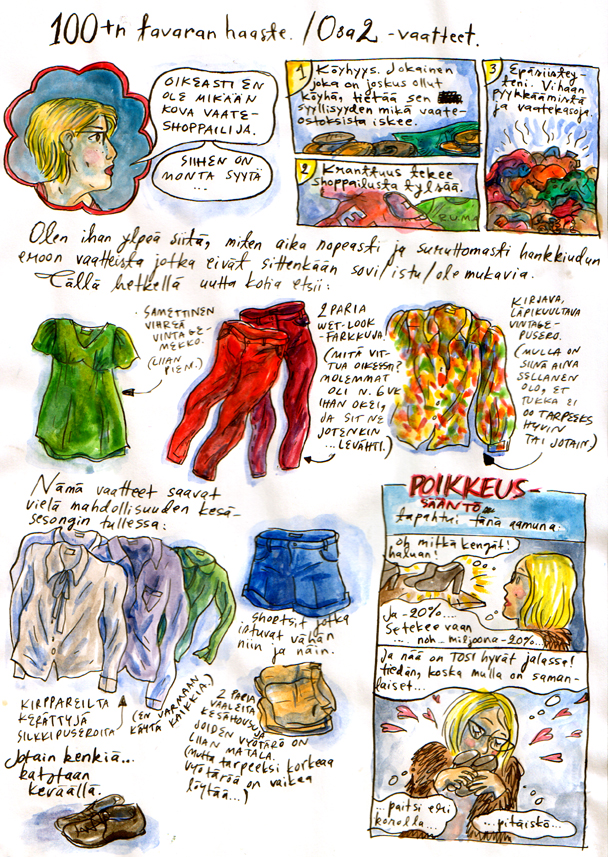 100+n tavaran haaste. / Osa 2 -vaatteet.
OIKEASTI EN
OLE MIKÄÄN
KOVA VAATE-
SHOPPAILIJA.
SIIHEN ON
MONTA SYYTÄ
...
1
Köyhyys. Jokainen
joka on joskus ollut
köyhä, tietää sen
syyllisyyden mikä vaate-
ostoksista iskee.
2
Kranttuus tekee
shoppailusta tylsää.
PUMA
3
Epäsiistey-
teni. Vihaan
pyykkäämistä
ja vaatekasoja.
Olen ihan ylpeä siitä, miten aika nopeasti ja surutto­masti hankkiudun
eroon vaatteista jotka eivät sittenkään sovi/istu/ole mukavia.
Tällä hetkellä uutta kotia etsii:
SAMETTINEN
VIHREÄ
VINTAGE-
MEKKO.
(LIIAN
PIENI.)
2 PARIA
WET-LOOK
-FARKKUJA.
(MITÄ VIT-
TUA OIKEESSA?
MOLEMMAT
OLI N. 6 VK
IHAN OKEI,
JA SIT NE
JOTENKIN
...LEVÄHTI.)
KIRJAVA,
LÄPIKUULTAVA
VINTAGE-
PUSERO.
(MULLA ON
SIINÄ AINA
SELLANEN
OLO, ET
TUKKA EI
OO TARPEEKS
HYVIN
TAI JOTAIN.)
Nämä vaatteet saavat
vielä mahdollisuuden kesä-
sesongin tullessa:
KIRPPAREILTA
KERÄTTYJÄ
SILKKIPUSEROITA
(EN VARMAAN
KÄYTÄ
KAIKKIA.)
Shortsit jotka
istuvat vähän
niin ja näin.
2 PARIA
VAALEITA
KESÄHOUSUJA
JOIDEN VYÖTÄRÖ ON
LIIAN MATALA.
(Mutta tarpeeksi korkeaa
vyötäröä on vaikea
löytää...)
Jotain kenkiä...
katsotaan
keväällä.
POIKKEUS-
SÄÄNTÖ...
tapahtui tänä aamuna:
oh mitkä kengät!
haluan!
Ja -20%....
Setekee vaan
... noh.. miljoona -20%...
Ja nää on TOSI hyvät jalassa!
tiedän, koska mulla on saman-
laiset...
...paitsi eri
korolla...
...pitäiskö...